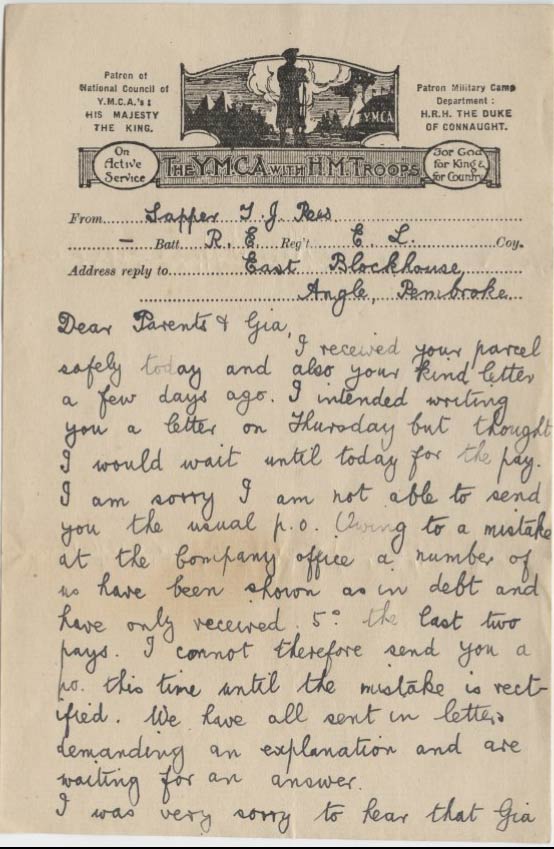 Patron of
National Council of
Y.M.C.A.'s :
HIS MAJESTY
THE KING.
YMCA
Patron Military Camp
Department :
H.R.H. THE DUKE
OF CONNAUGHT.
On
Active
Service
THE Y.M.C.A WITH H.M. TROOPS
For God
for King &
for Country
From Sapper T. J. Rees
– Batt R. E. Reg't E. L. Coy.
Address reply to East Blockhouse,
Angle, Pembroke
Dear Parents & Gia,
I received your parcel
safely today and also your kind letter
a few days ago. I intended writing
you a letter on Thursday but thought
I would wait until today for the pay.
I am sorry I am not able to send
you the usual p.o. Owing to a mistake
at the Company office a number of
us have been shown as in debt and
have only received 5° the last two
pays. I cannot therefore send you a
po. this time until the mistake is rect-
ified. We have all sent in letters
demanding an explanation and are
waiting for an answer.
I was very sorry to hear that Gia